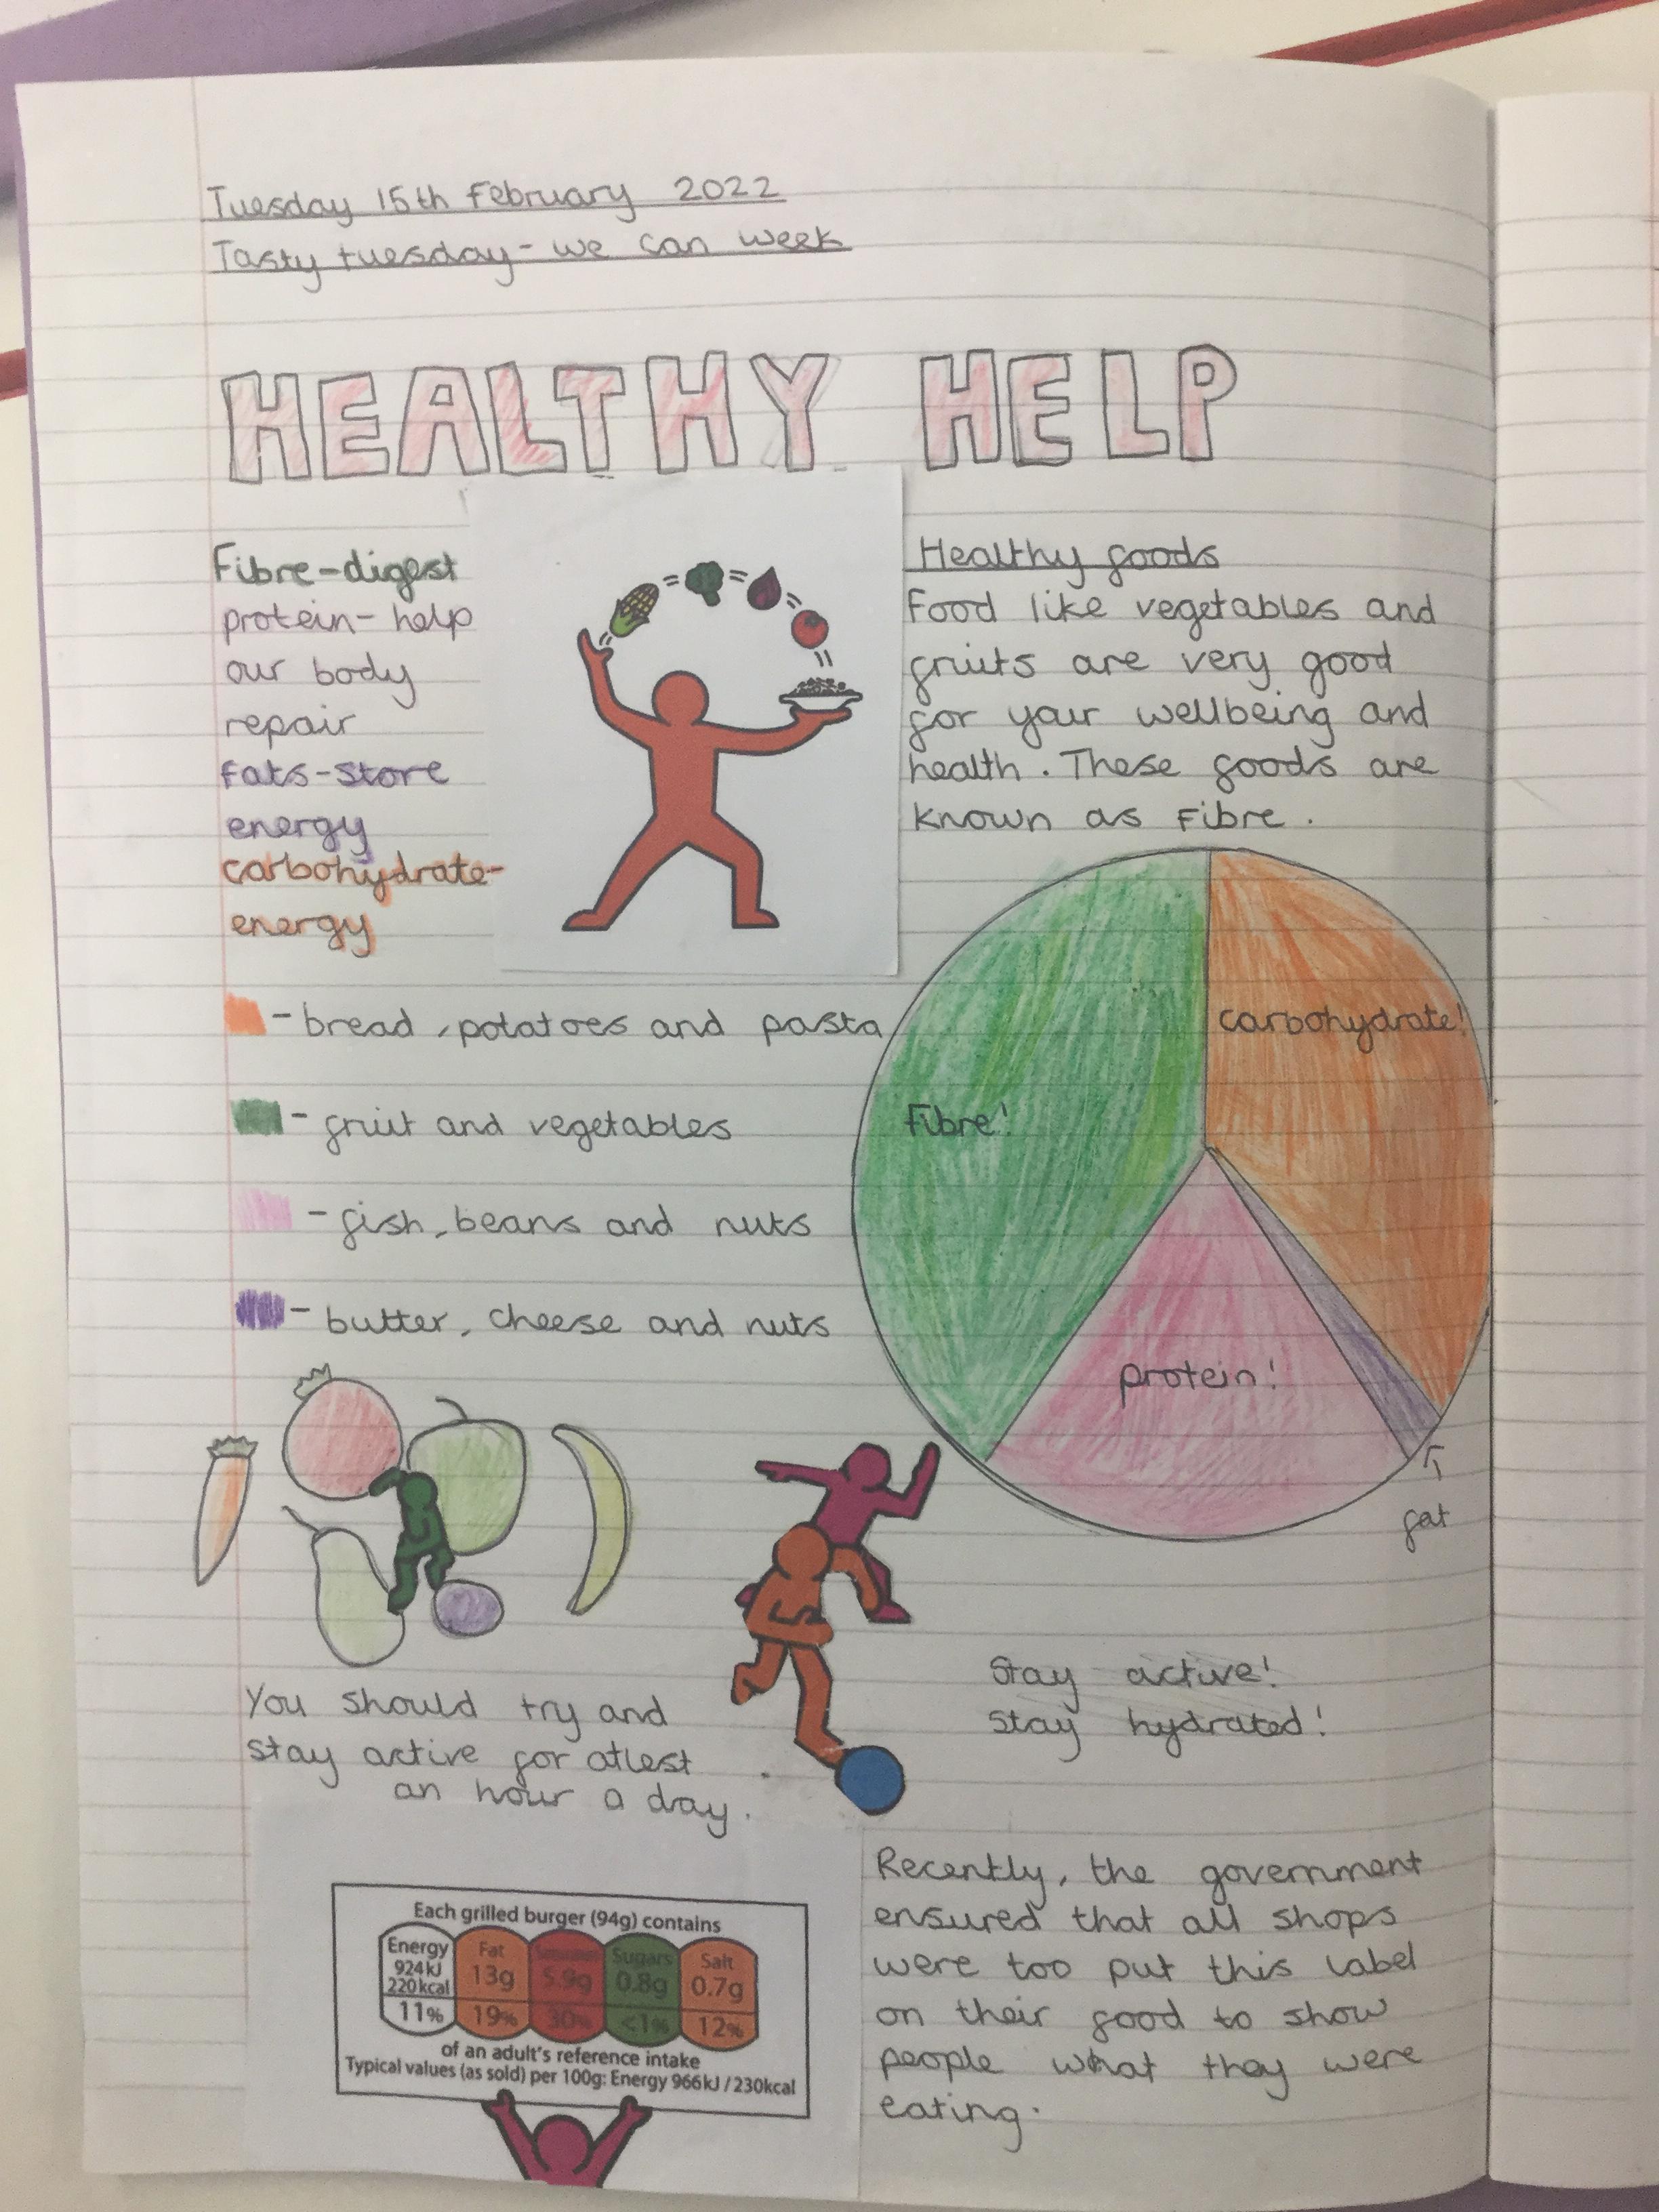 Tuesday 15th February 2022
Tasty tuesday - we can week
HEALTHY HELP
Fibre-digest
protein- help
our body
repair
fats-store
energy
carbohydrate-
energy
Healthy foods
Food like vegetables and
fruits are very good
for your wellbeing and
health. These foods are
known as Fibre.
- bread, potatoes and pasta
- fruit and vegetables
- fish, beans and nuts
- butter, cheese and nuts
Fibre!
carbohydrate!
protein!
fat
You should try and
stay active for atlest
an hour a day.
Stay active!
Stay hydrated!
Each grilled burger (94g) contains
Energy 924kJ 220kcal 11%
Fat 13g 19%
5.9g 30%
Sugars 0.8g <1%
Salt 0.7g 12%
of an adult's reference intake
Typical values (as sold) per 100g: Energy 966kJ / 230kcal
Recently, the government
ensured that all shops
were too put this label
on their food to show
people what they were
eating.